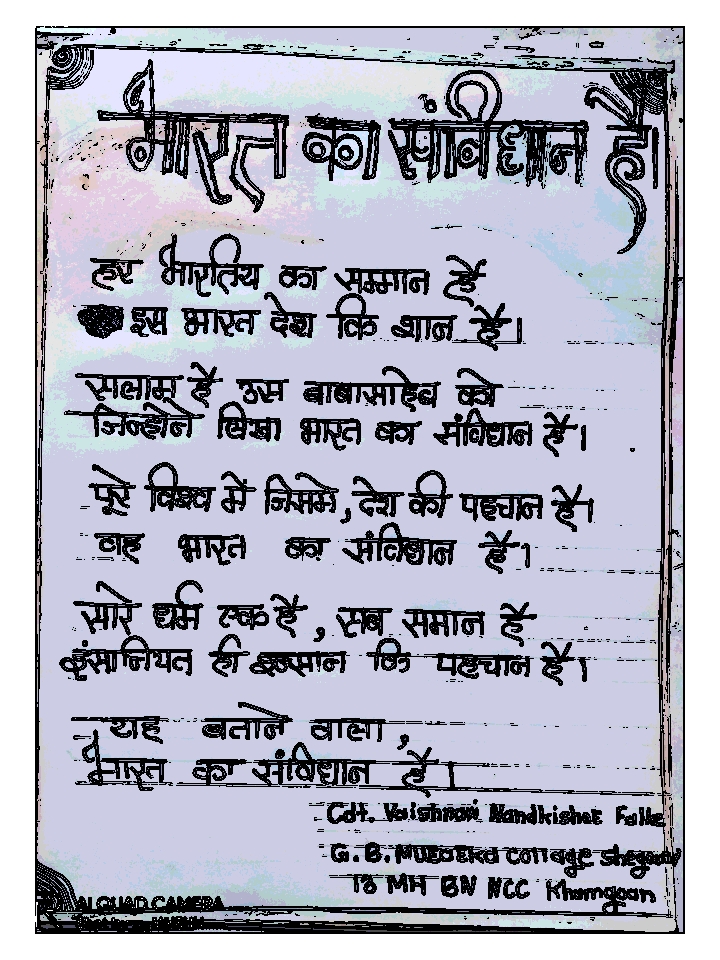 भारत का संविधान है।
हर भारतिय का सम्मान है
इस भारत देश कि शान है।
सलाम है उस बाबासाहेब को
जिन्होने लिखा भारत का संविधान है।
पूरे विश्व में जिसमे, देश की पहचान है।
वाह भारत का संविधान है।
सारे धर्म एक है, सब समान है
इंसानियत ही इन्सान कि पहचान है।
यह बताने वाला,
भारत का संविधान है।
Cdt. Vaishnavi Nandkishor
G.B. College Shegaon
13 MH BN NCC Khamgaon
AI QUAD CAMERA